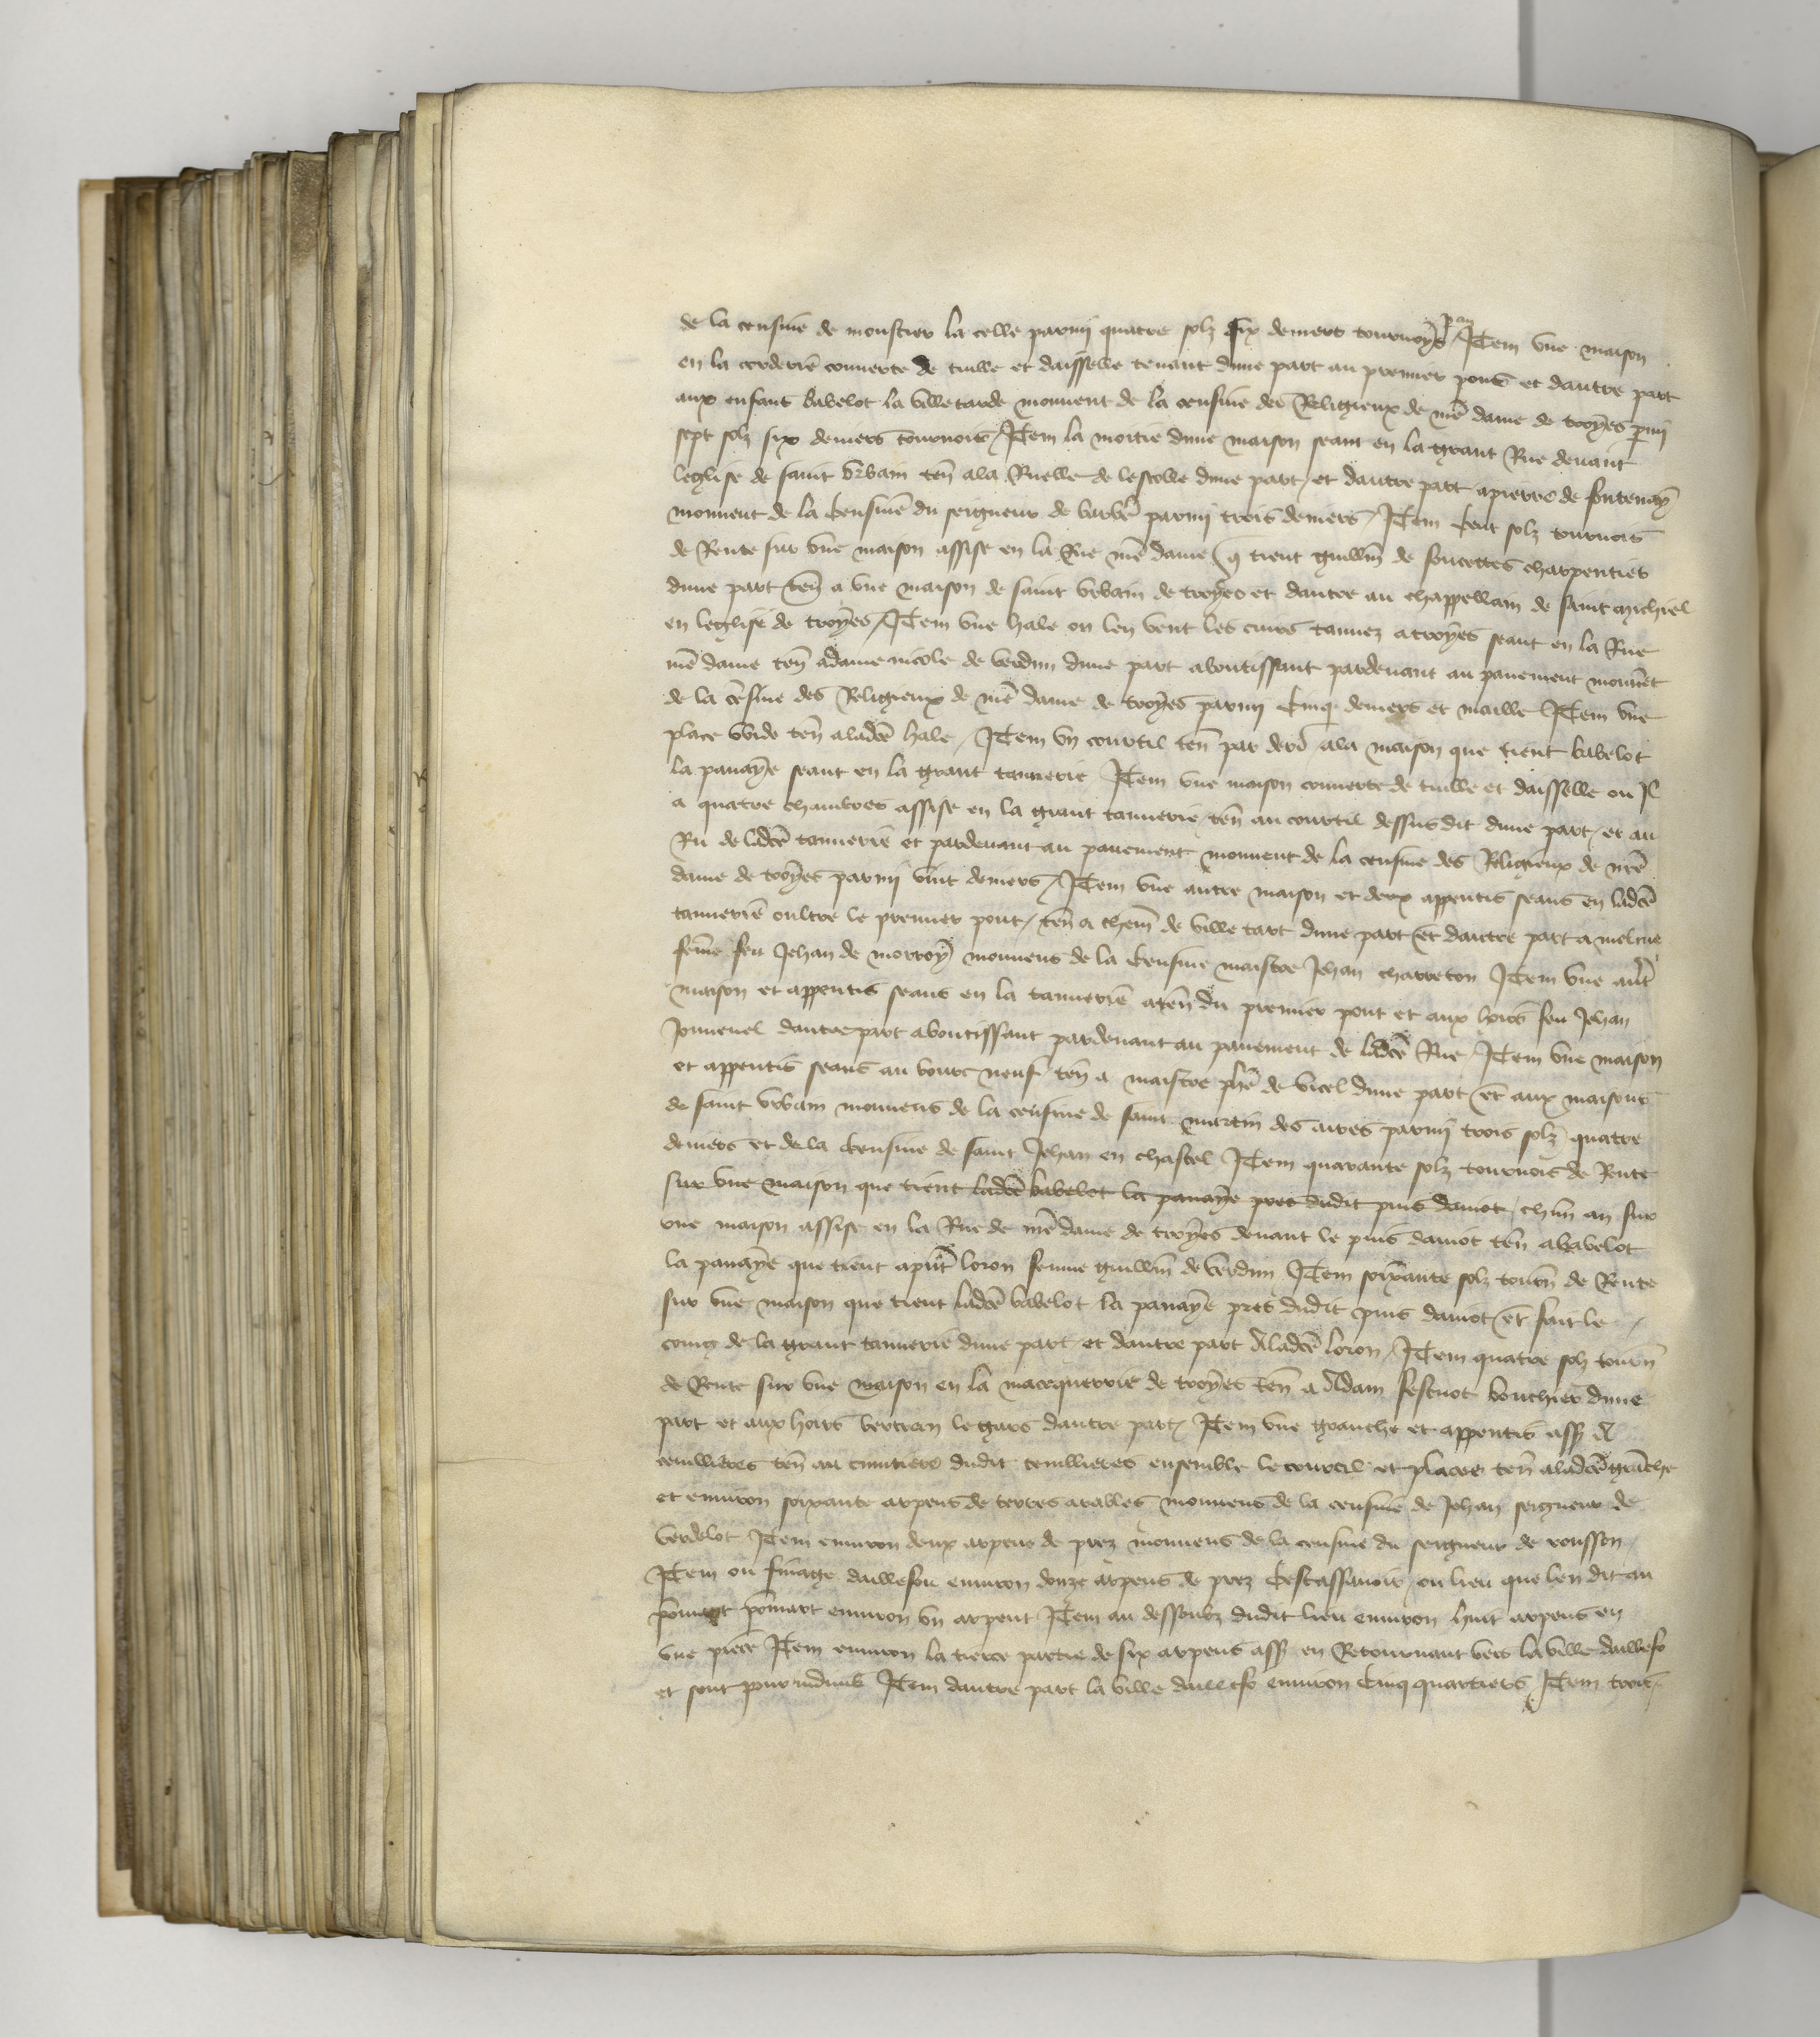 de la censive de moustier la celle parmi quatre solz six deniers tournoys p an Item une maison
en la corderie couverte de tuille et daisselle tenant dune part au premier pont et dautre part
aux enfans babelot la villetarde mouvent de la censive des Religieux de nre dame de troyes pmi
sept solz six deniers tournois / Item la moitie dune maison seant en la grant Rue devant
leglise de saint Urbain ten a la Ruelle de lescolle dune part et dautre part a pierre de fontenay
mouvent de la Censive du seigneur de barbe parmi trois deniers / Item Cent solz tournois
de Rente sur une maison assise en la Rue nre dame q tient guillm de foucettes charpentier
dune part ten a une maison de saint urbain de troyes et dautre au chappellain de saint michiel
en leglise de troyes / Item une hale ou len vent les cuirs tannez a troyes seant en la Rue
nre dame ten a dame nicole de verdun dune part aboutissant pardevant au pavement mouvet
de la cesive des Religieux de nre dame de troyes parmi Cinq deniers et maille Item une
place vuide ten a ladce hale / Item un courtil ten par deri a la maison que tient babelot
la panaye seant en la grant tannerie Item une maison couverte de tuille et daisselle ou Il
a quatre chambres assise en la grant tannerie ten au courtil dessus dit dune part et au
Ru de ladce tannerie et pardevant au pavement mouvent de la censive des Religieux de nre
dame de troyes parmi vint deniers / Item une autre maison et deux appentis seans en ladce
tannerie oultre le premier pont / ten a them de ville tart dune part et dautre part a meline
feme feu Jehan de morroy mouvens de la Censive maistre Jehan charreton Item une autr
maison et appentis seans en la tannerie aten du premier pont et aux hoirs feu Jehan
Jouvenel dautre part aboutissant pardevant au pavement de ladce Rue / Item une maison
et appentis seans au bourc neuf ten a maistre phe de vitel dune part et aux maisons
de saint urbain mouvens de la censive de saint martin des aires parmi trois solz quatre
deniers et de la Censive de saint Jehan en chastel Item quarante solz tournois de Rente
sur une maison que tient ladce babelot la panaye pres dudit puis damot / chun an sur
une maison assise en la Rue de nre dame de troyes devant le puis damot ten a babelot
la panaye que tient a pnt loron femme guillm de verdun Item soixante solz tourn de Rente
sur une maison que tient ladce babelot la panaye pres dudit puis damot et fait le
coing de la grant tannerie dune part et dautre part A ladce loron / Item quatre solz tourn
de Rente sur une maison en la macequerrie de troyes ten a Adam festuot bouchier dune
part et aux hoirs bertran le gars dautre part Item une granche et appentis assz A
cenillieres ten au cimitiere dudit cenillieres ensemble le courtil et places ten a ladce granche
et environ soixante arpens de terres arables mouvens de la censive de Jehan seigneur de
verdelot Item environ deux arpens de prez mouvens de la censive du seigneur de rousson
Item ou finage daillefou environ donze arpens de prez Cestassavoir ou lieu que len dit au
pomart environ un arpent Item au dessoubz dudit lieu environ huit arpens en
une piece Item environ la tierce partie de six arpens assz en Retournant vers la ville daillefo
et sont pour indivis Item dautre part la ville daillefo environ Cinq quartiers Item trois